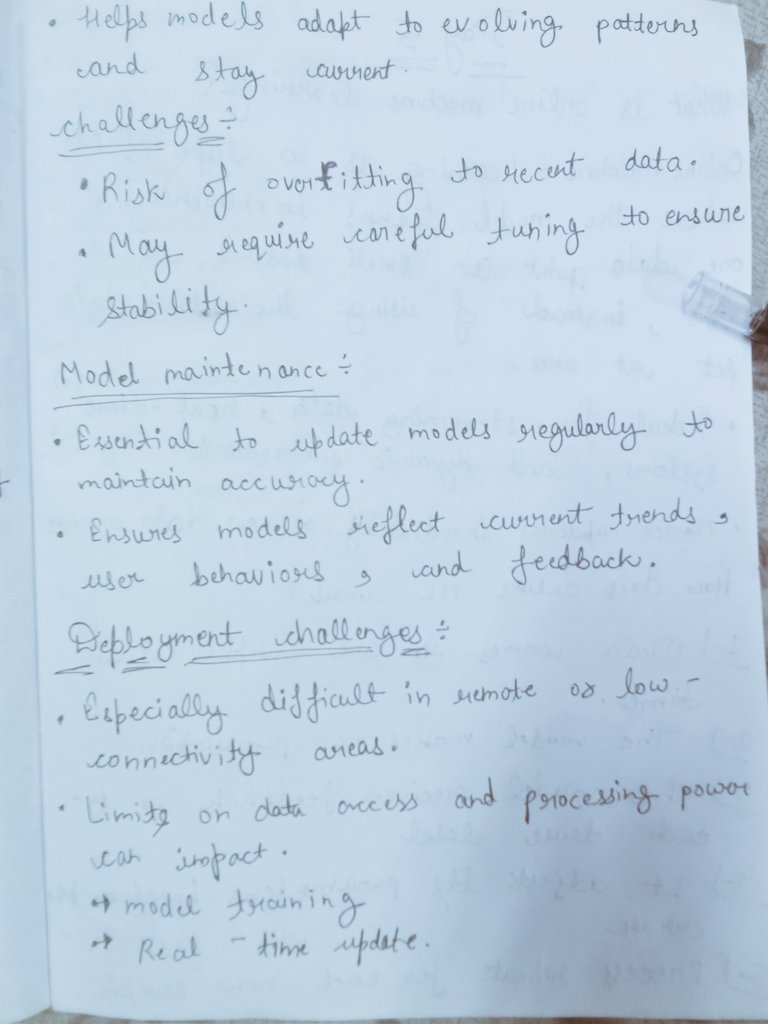 • Helps models adapt to evolving patterns
and stay current.
challenges ÷
• Risk of overfitting to recent data.
• May require careful tuning to ensure
stability.
Model maintenance ÷
• Essential to update models regularly to
maintain accuracy.
• Ensures models reflect current trends,
user behaviors, and feedback.
Deployment challenges ÷
• Especially difficult in remote or low-
connectivity areas.
• Limits on data access and processing power
can impact.
→ model training
→ Real-time update.